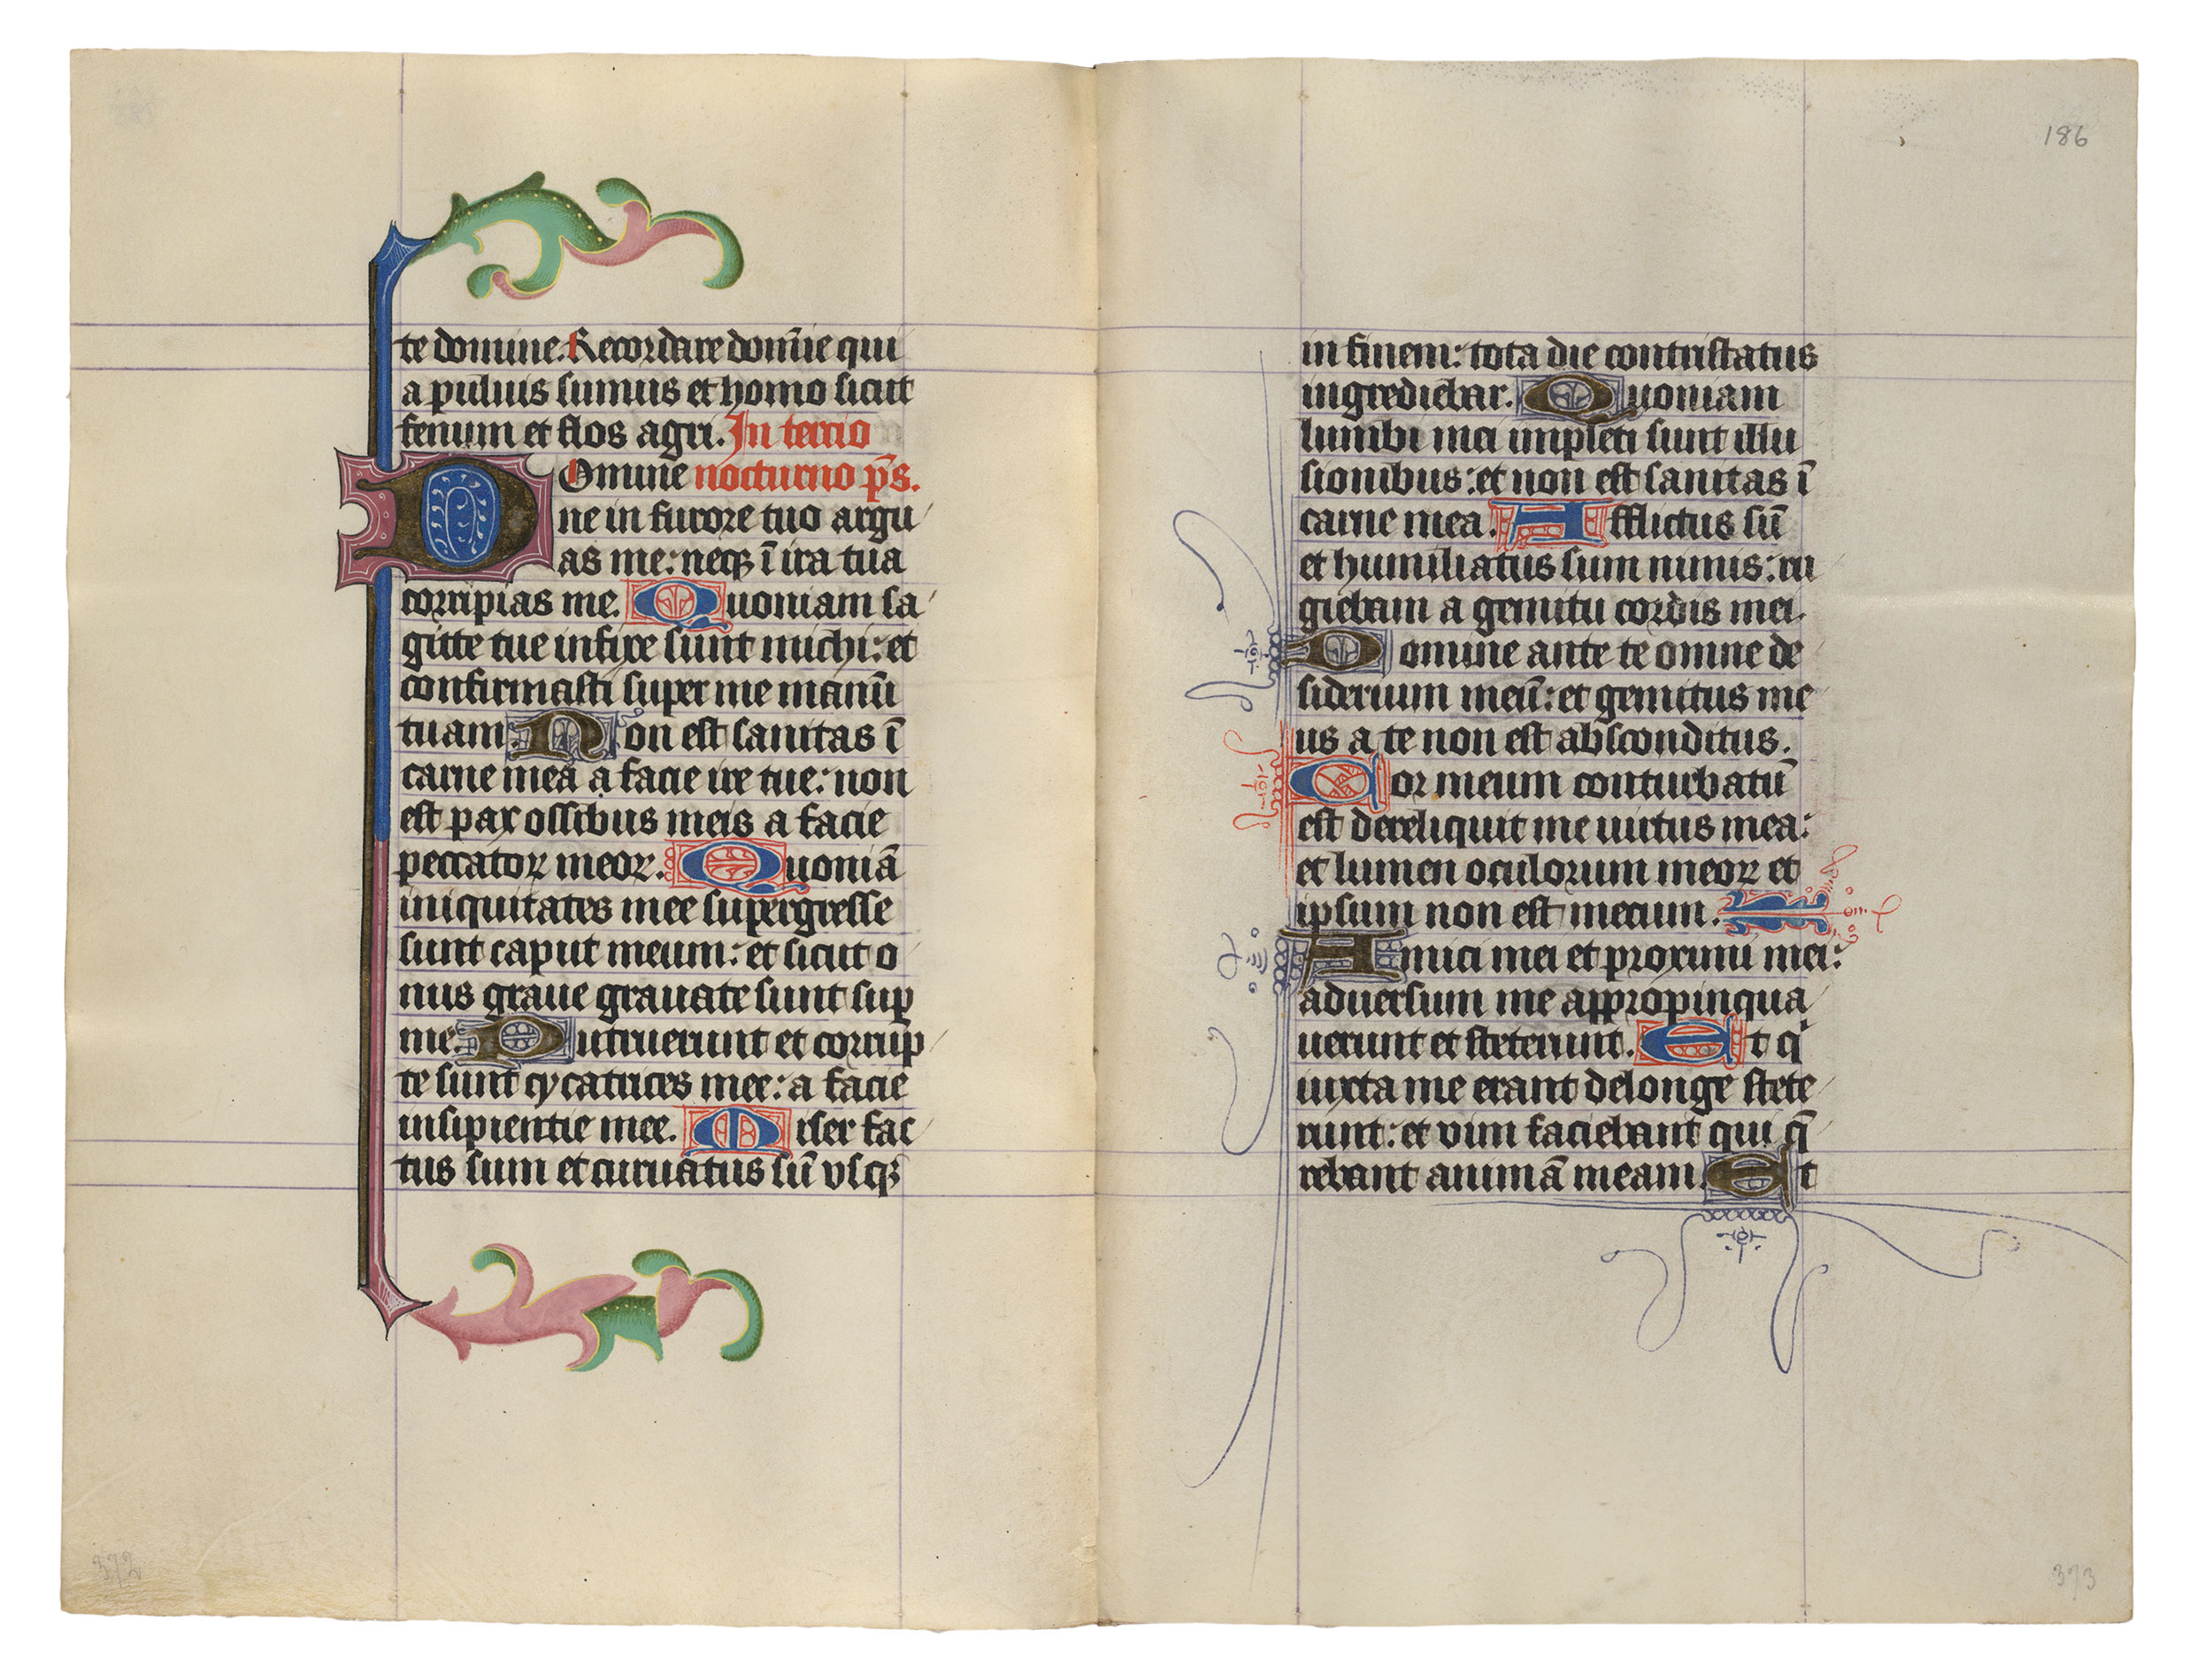 te domine. Recordare dom̄ie qui
a puluis sumus et homo sicut
fenum et flos agri. In tercio
Domine nocturno p̄s.
ne in furore tuo argu
as me: neqꝫ ī ira tua
corripias me. Quoniam sa
gitte tue infixe sunt michi: et
confirmasti super me manū
tuam. Non est sanitas ī
carne mea a facie ire tue: non
est pax ossibus meis a facie
peccatoꝝ meoꝝ. Quoniā
iniquitates mee supergresse
sunt caput meum: et sicut o
nus graue grauate sunt suꝑ
me. Putruerunt et corrup
te sunt cycatrices mee: a facie
insipientie mee. Miser fac
tus sum et curuatus sū vsqꝫ
372
186
in finem: tota die contristatus
ingrediebar. Quoniam
lumbi mei impleti sunt illu
sionibus: et non est sanitas ī
carne mea. Afflictus sū
et humiliatus sum nimis: ru
giebam a gemitu cordis mei.
Domine ante te omne de
siderium meū: et gemitus me
us a te non est absconditus.
Cor meum conturbatū
est dereliquit me uirtus mea:
et lumen oculorum meoꝝ et
ipsum non est mecum.
Amici mei et proximi mei:
aduersum me appropinqua
uerunt et steterunt. Et qⁱ
iuxta me erant delonge stete
runt: et vim faciebant qui q̄
rebant animā meam. Et
373